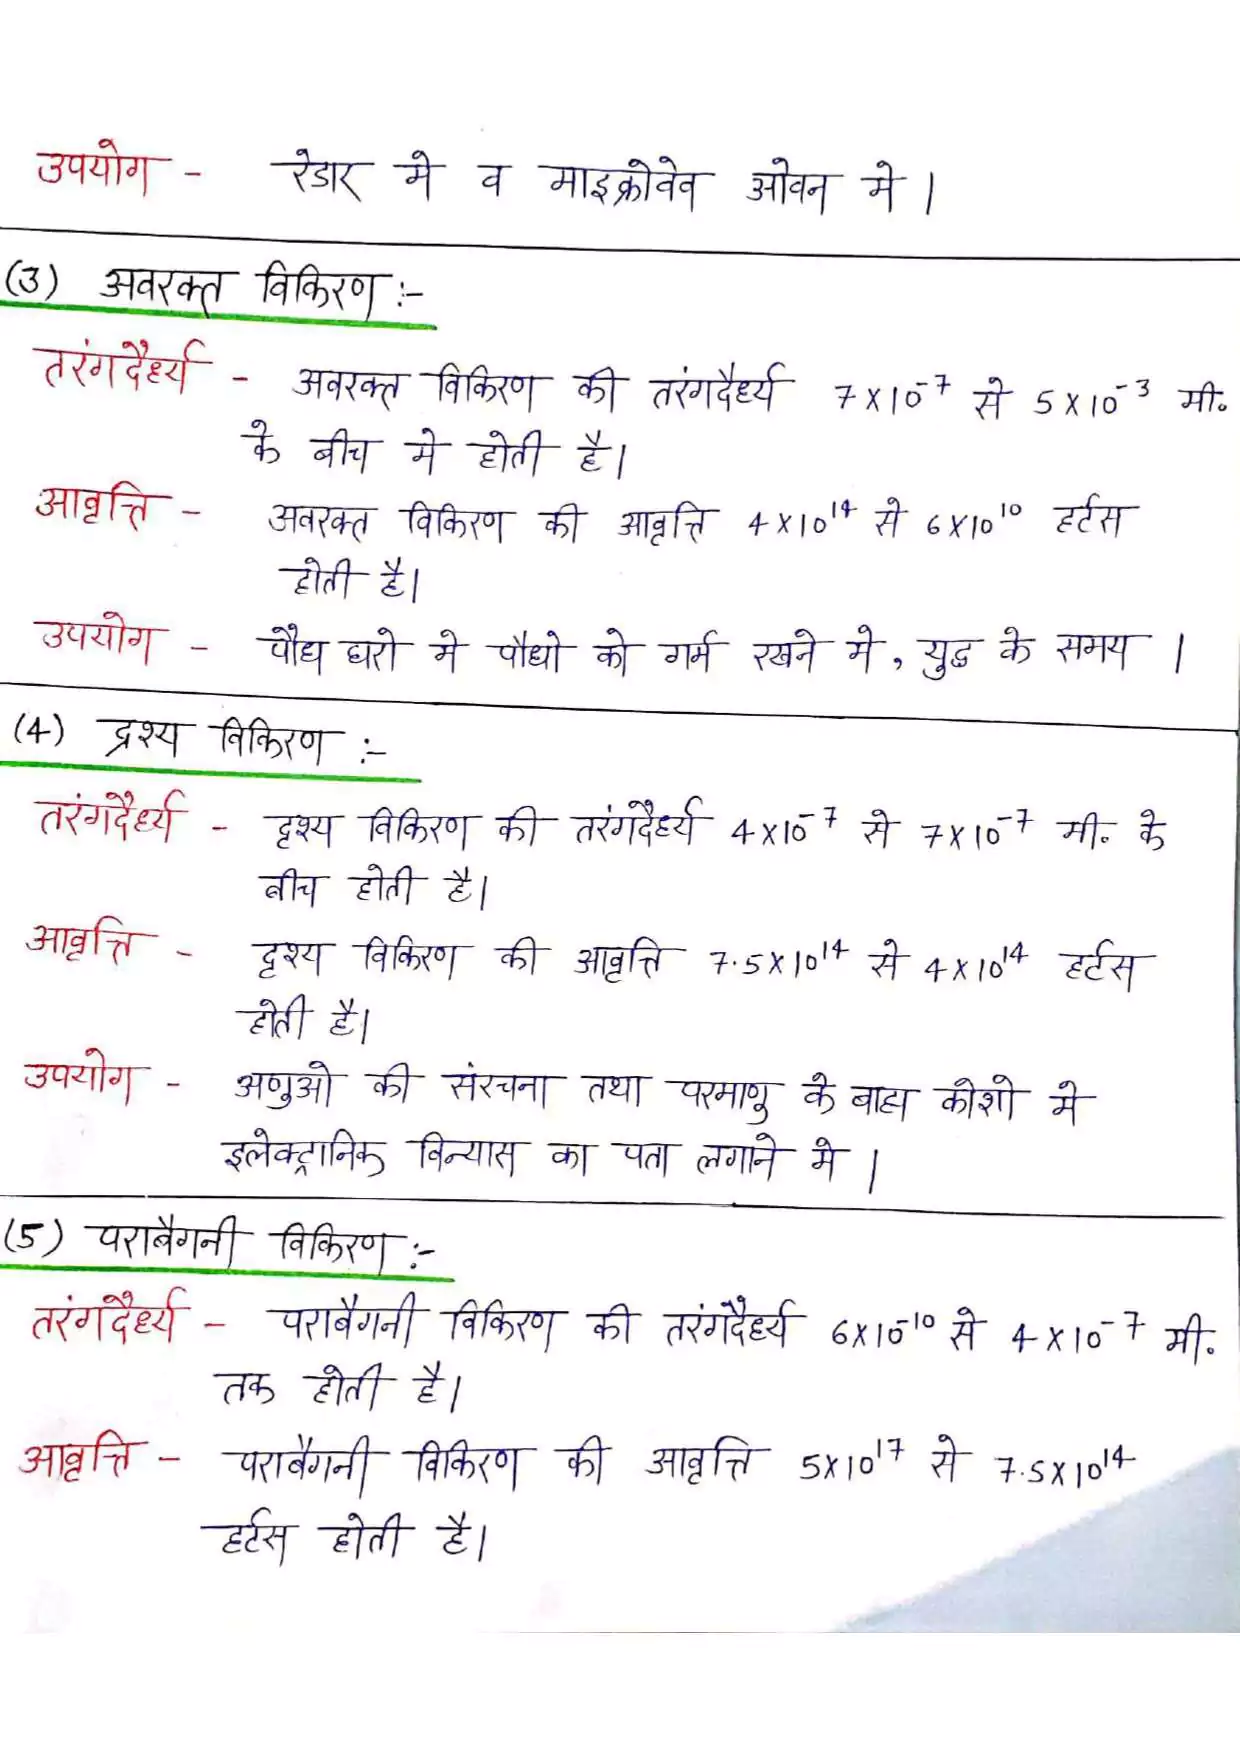 उपयोग - रेडार मे व माइक्रोवेव ओवन मे।
(3) अवरक्त विकिरण :-
तरंगदैर्ध्य - अवरक्त विकिरण की तरंगदैर्ध्य 7×10⁻⁷ से 5×10⁻³ मी.
के बीच मे होती है।
आवृत्ति - अवरक्त विकिरण की आवृत्ति 4×10¹⁴ से 6×10¹⁰ हर्टस
होती है।
उपयोग - पौध घरो मे पौधो को गर्म रखने मे, युद्ध के समय ।
(4) द्रश्य विकिरण :-
तरंगदैर्ध्य - दृश्य विकिरण की तरंगदैर्ध्य 4×10⁻⁷ से 7×10⁻⁷ मी. के
बीच होती है।
आवृत्ति - दृश्य विकिरण की आवृत्ति 7.5×10¹⁴ से 4×10¹⁴ हर्टस
होती है।
उपयोग - अणुओ की संरचना तथा परमाणु के बाह्य कोशो मे
इलेक्ट्रानिक विन्यास का पता लगाने मे ।
(5) पराबैगनी विकिरण :-
तरंगदैर्ध्य - पराबैगनी विकिरण की तरंगदैर्ध्य 6×10⁻¹⁰ से 4×10⁻⁷ मी.
तक होती है।
आवृत्ति - पराबैगनी विकिरण की आवृत्ति 5×10¹⁷ से 7.5×10¹⁴
हर्टस होती है।